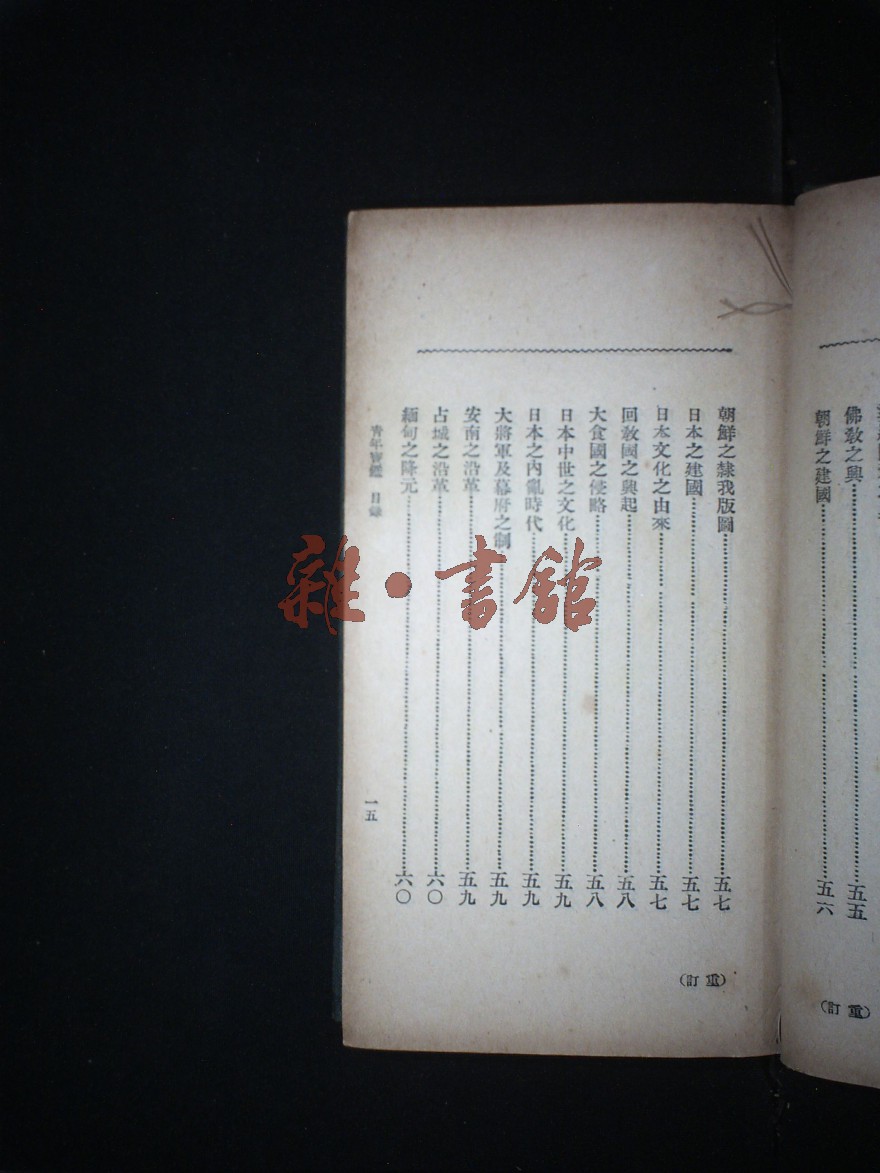 佛敎之興……五五
朝鮮之建國……五六
（重訂）
朝鮮之隸我版圖……五七
日本之建國……五七
日本文化之由來……五七
回敎國之興起……五八
大食國之侵略……五八
日本中世之文化……五九
日本之內亂時代……五九
大將軍及幕府之制……五九
安南之沿革……五九
占城之沿革……六〇
緬甸之降元……六〇
青年寶鑑 目錄
一五
（重訂）
雜·書館